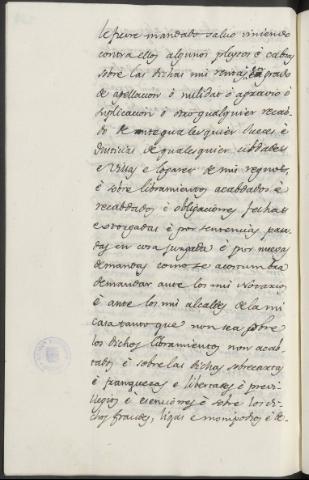 le fuere mandado salvo viniendo
contra ellos algunos pleytos è cabsas
sobre las dichas mis rentas en grado
de apellacion ò nulidat ò agravio ò
suplicacion ò otro qualquier recab-
do de ante quales quier Jueces è
Justicias de quales quier cibdades
e Villas e logares de mis regnos,
è sobre libramientos acabdados e
recabdados è obligaciones fechas
e otorgadas è por sentencias pasa-
das en cosa juzgada è por nuevas
demandas como se acostumbra
demandar ante los mis Notarios
è ante los mis alcaldes de la mi
Casa tanto que non sea sobre
los dichos libramientos non acab-
dados è sobre las dichas sobrecartas
è franquezas e libertades è previ-
llegios è esenciones è sobre los di-
chos fraudes, ligas e monipodios è de-